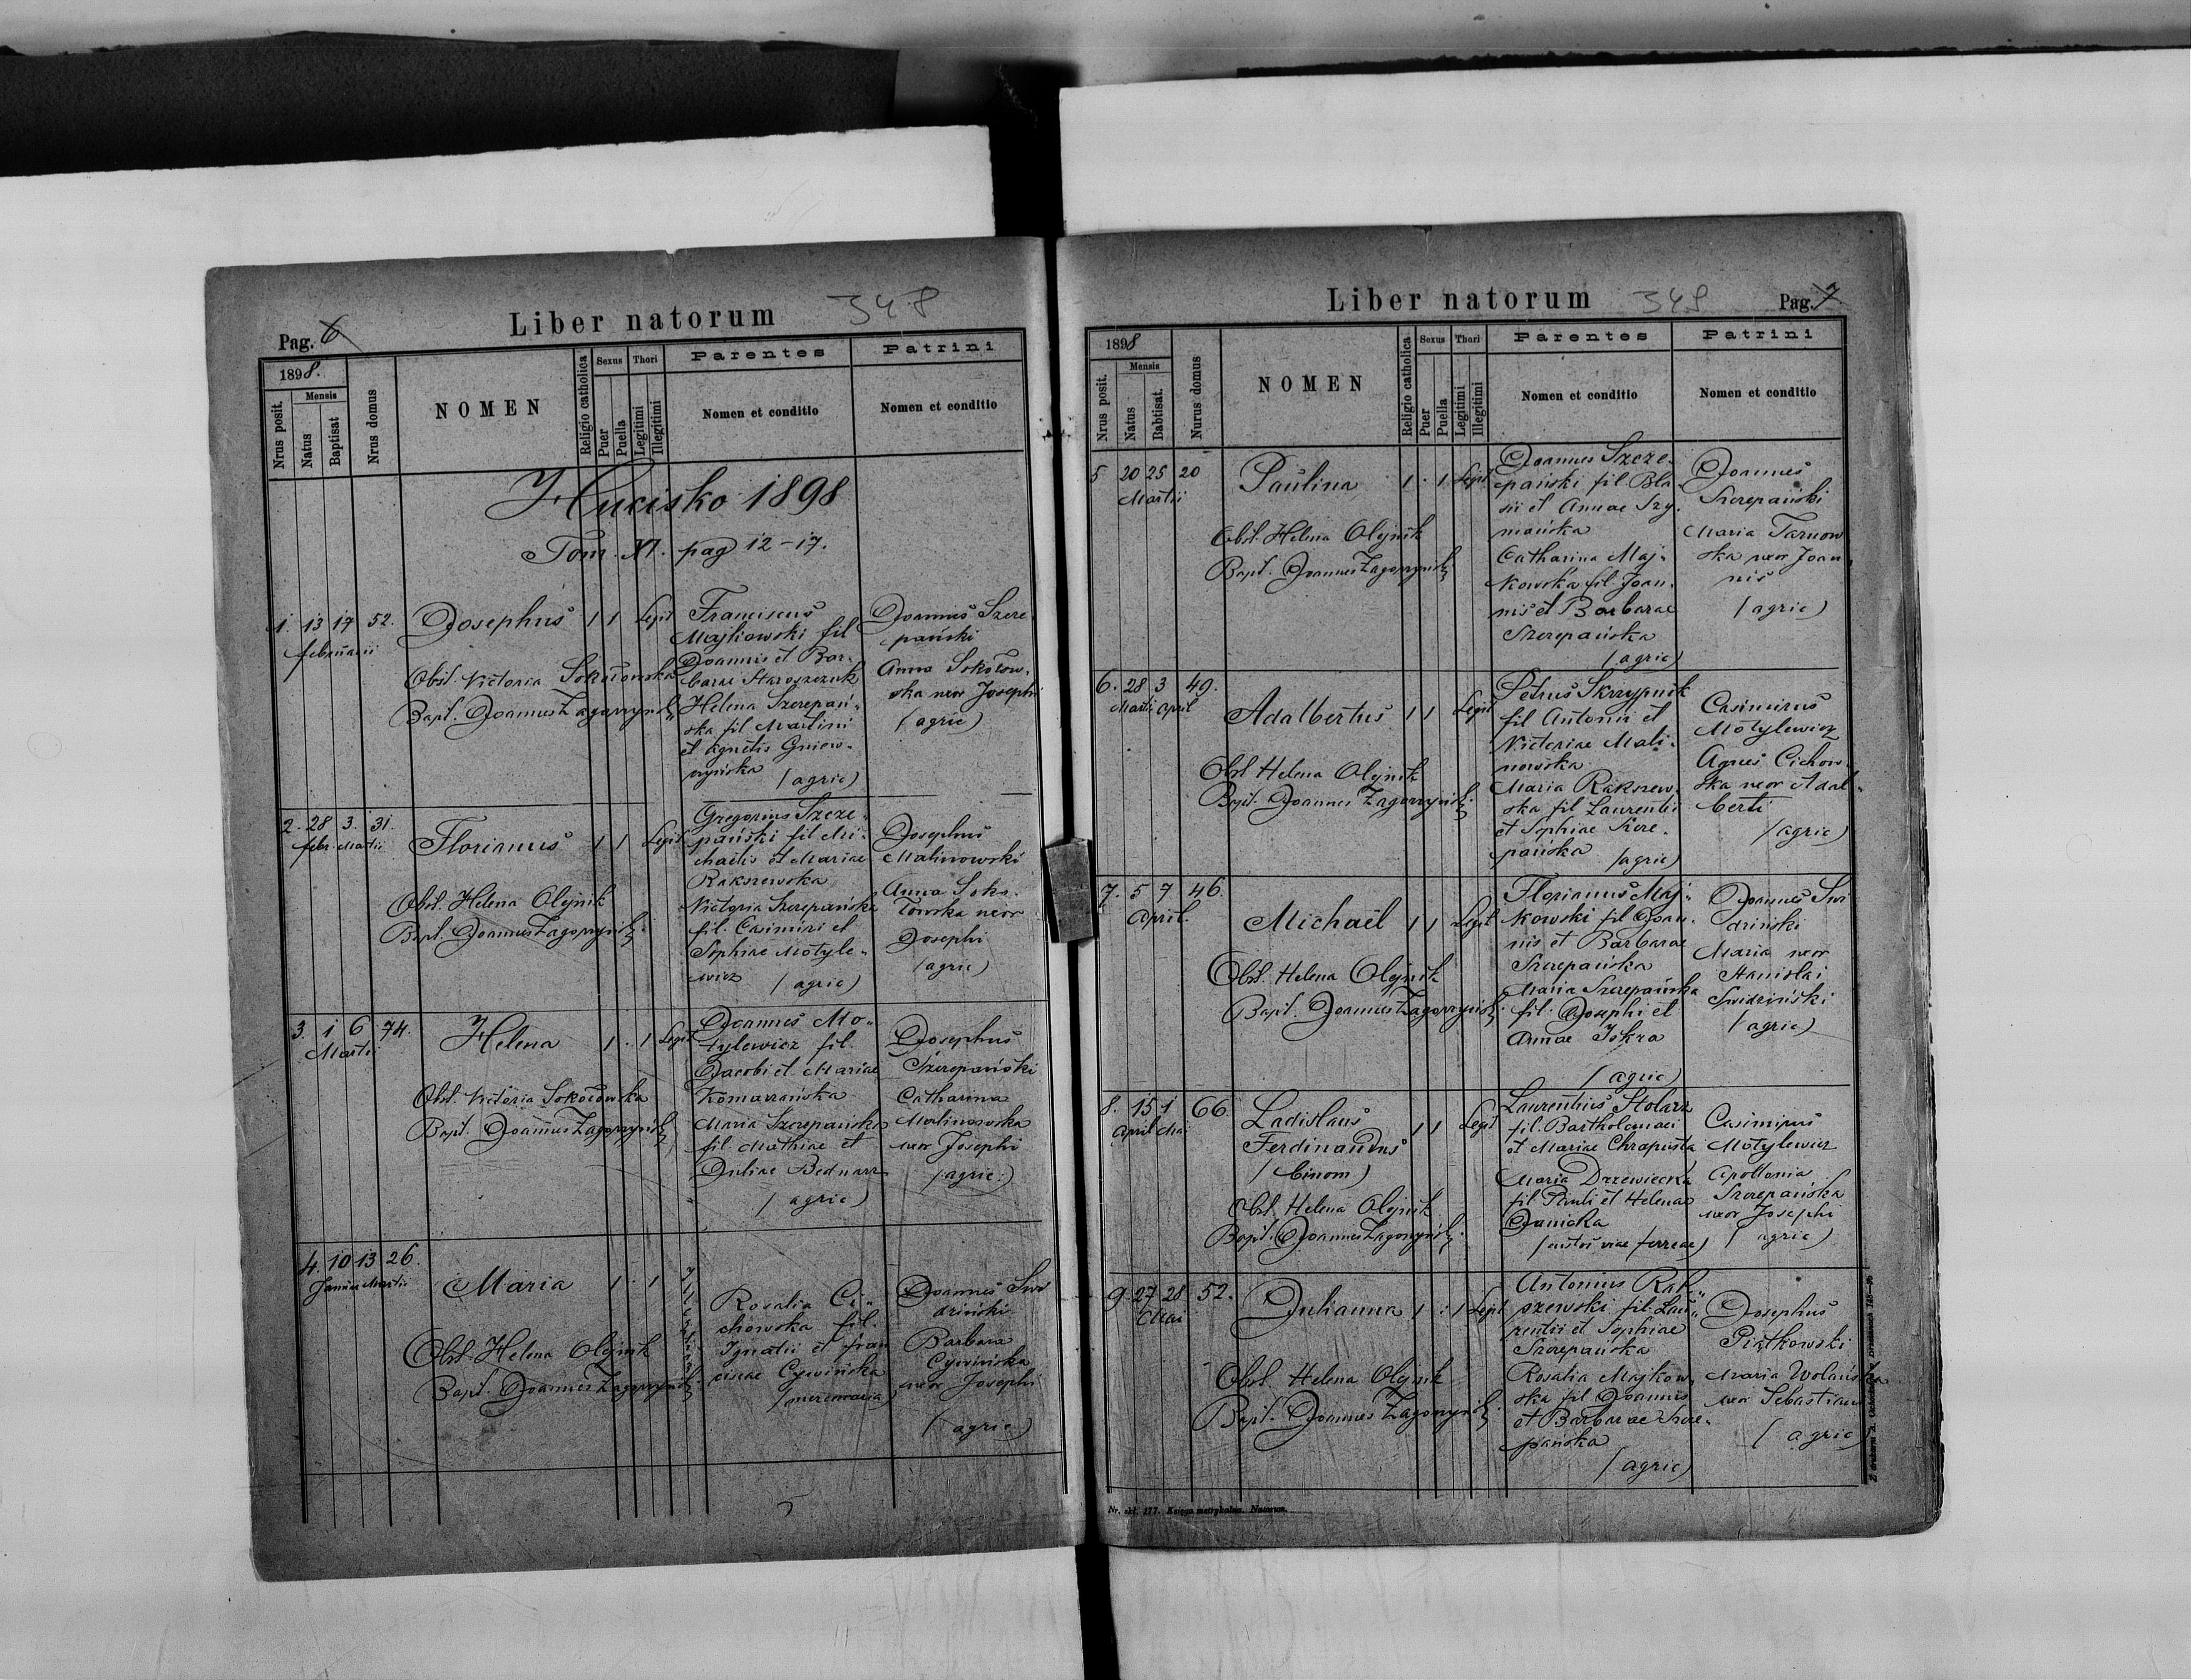 Pag. 6
Liber natorum
348
1898.
Nrus posit.
Mensis
Natus
Baptisat
Nrus domus
NOMEN
Religio catholica
Sexus
Puer
Puella
Thori
Legitimi
Illegitimi
Parentes
Nomen et conditio
Patrini
Nomen et conditio
Hucisko 1898
Tom. XI. pag 12-17.
1. 13 17 52.
februarii
Josephus 1 1 Legit
Obst. Victoria Sokołowska
Bapt. Joannes Zagorzynski
Franciscus
Majkowski fil
Joannis et Bar-
barae Staroszczuk
Helena Szczepań-
ska fil Martini
et Agnetis Gniew-
czyńska (agric)
Joannes Szcze
pański
Anna Sokołow-
ska uxor Josephi
(agric)
2. 28 3. 31.
febr. Martii
Florianus 1 1 Legit
Obst. Helena Olejnik
Bapt. Joannes Zagorzynski
Gregorius Szcze-
pański fil Mi-
chaelis et Mariae
Rakszewska
Victoria Szczepańska
fil. Casimiri et
Sophiae Motyle-
wicz (agric)
Josephus
Malinowski
Anna Soko-
łowska uxor
Josephi
(agric)
3. 1 6 74.
Martii
Helena 1 . 1 Legit
Obst. Victoria Sokołowska
Bapt. Joannes Zagorzynski
Joannes Mo-
tylewicz fil.
Jacobi et Mariae
Komarańska
Maria Szczepańska
fil Mathiae et
Juliae Bednarz
(agric)
Josephus
Szczepański
Catharina
Malinowska
uxor Josephi
(agric.)
4. 10 13 26
Januar Martii
Maria 1 . 1
Illegit
Obst. Helena Olejnik
Bapt. Joannes Zagorzynski
Rosalia Ci-
chowska fil.
Ignatii et Fran
ciscae Cywińska
(mercenaria)
Joannes Swi
driński
Barbara
Cywińska
uxor Josephi
(agric)
Liber natorum
349
Pag. 7
1898
Nrus posit.
Mensis
Natus
Babtisat.
Nurus domus
NOMEN
Religio catholica
Sexus
Puer
Puella
Thori
Legitimi
Illegitimi
Parentes
Nomen et conditio
Patrini
Nomen et conditio
5 20 25 20
Martii
Paulina 1 . 1 Legit
Obst. Helena Olejnik
Bapt. Joannes Zagorzynski
Joannes Szcze-
pański fil. Bla-
sii et Annae Szy-
mańska
Catharina Maj-
kowska fil. Joan-
nis et Barbarae
Szczepańska
(agric)
Joannes
Szczepański
Maria Tarnow
ska uxor Joan-
nis
(agric)
6. 28 3 49.
Martii April
Adalbertus 1 1 Legit
Obst Helena Olejnik
Bapt. Joannes Zagorzynski
Petrus Skrzypnik
fil Antonii et
Victoriae Mali-
nowska
Maria Rakszew-
ska fil Laurentii
et Sophiae Szcze-
pańska (agric)
Casimirus
Motylewicz
Agnes Cichow-
ska uxor Adal-
berti
(agric)
7. 5 7 46.
April.
Michaël 1 1 Legit
Obst. Helena Olejnik
Bapt. Joannes Zagorzynski
Florianus Maj-
kowski fil Joan-
nis et Barbarae
Szczepańska
Maria Szczepańska
fil. Josephi et
Annae Iskra
(agric)
Joannes Swi
driński
Maria uxor
Stanislai
Swidriński
(agric)
8. 15 1 66.
April Mai
Ladislaus
Ferdinandus
(binom)
1 1 Legit
Obst Helena Olejnik
Bapt. Joannes Zagorzynski
Laurentius Stolarz
fil. Bartholomaei
et Mariae Chrapusta
Maria Drzewiecka
fil Pauli et Helenae
Danicka
(custos viae ferreae)
Casimirus
Motylewicz
Apollonia
Szczepańska
uxor Josephi
(agric)
9. 27 28 52.
Mai
Julianna 1 : 1 Legit
Obst Helena Olejnik
Bapt. Joannes Zagorzynski
Antonius Rak-
szewski fil. Lau-
rentii et Sophiae
Szczepańska
Rosalia Majkow-
ska fil Joannis
et Barbarae Szcze-
pańska
(agric)
Josephus
Piątkowski
Maria Wolańska
uxor Sebastiani
(agric)
Nr. skł. 177. Księga metrykalna. Natorum.